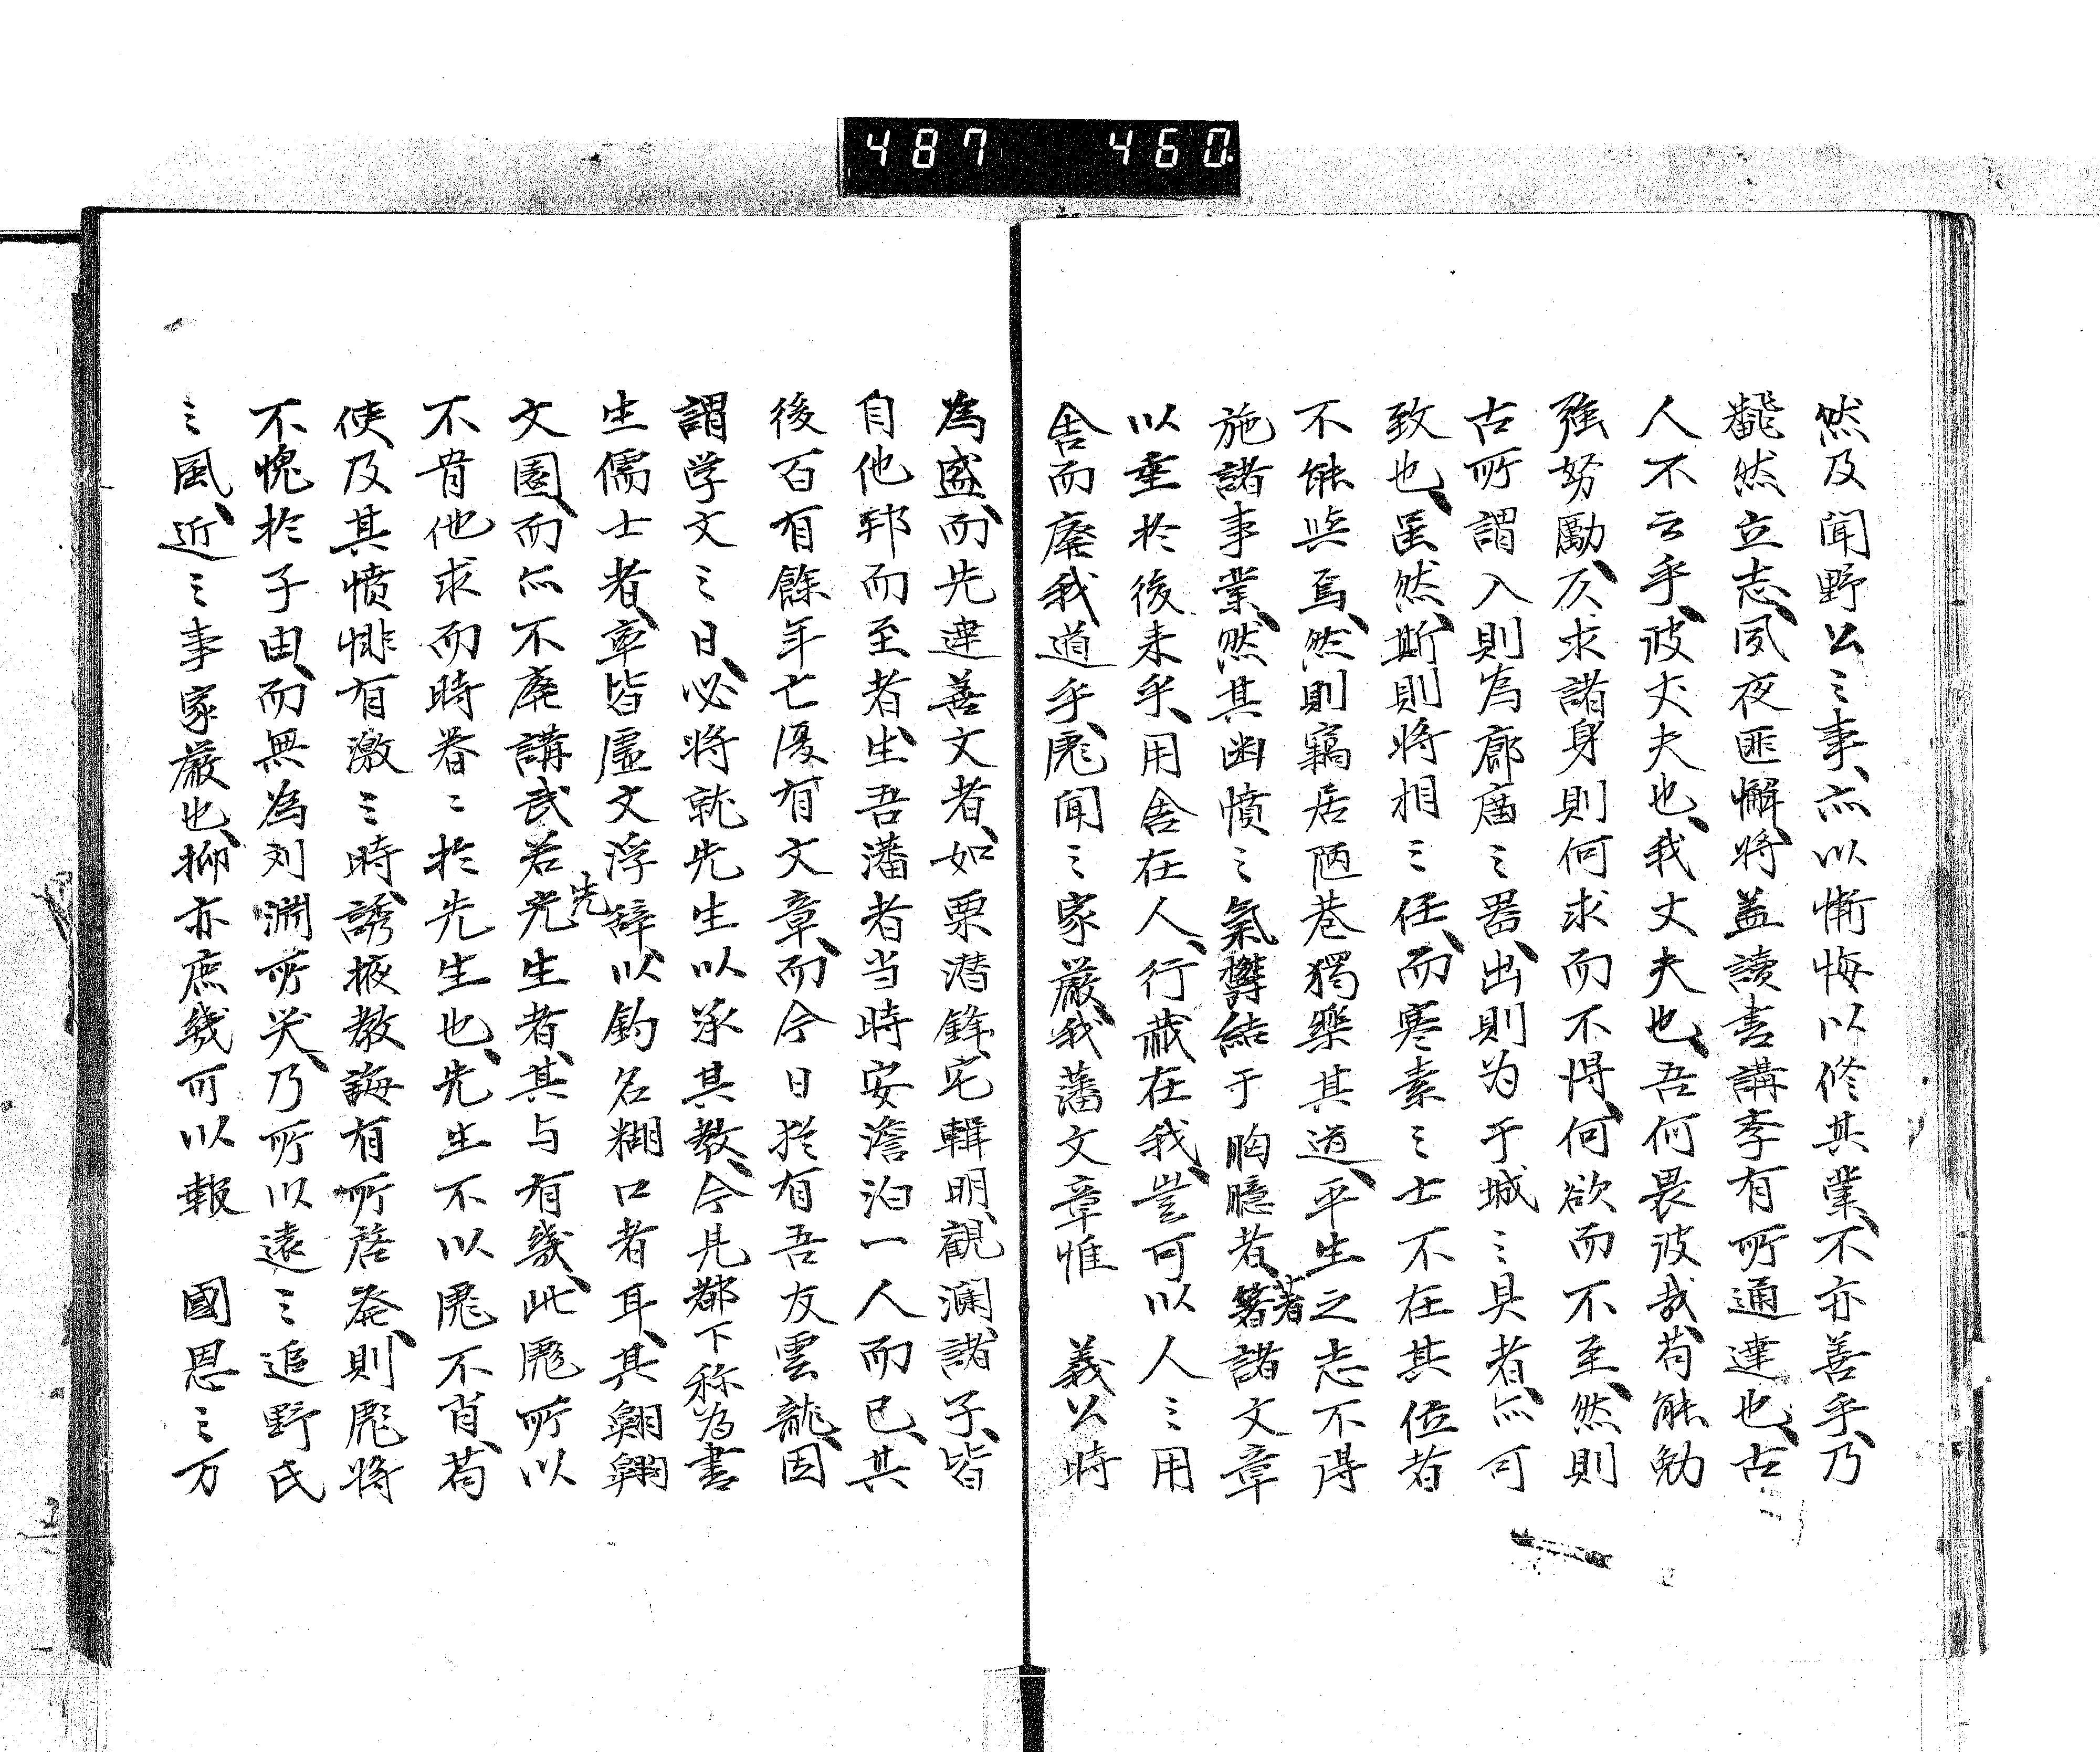 487 460
然及聞野公之事、亦以慚悔以修其業、不亦善乎、乃
然立志、夙夜匪懈、将益読書講季有所通達也、古
人不云乎、彼丈夫也、我丈夫也、吾何畏彼哉、苟能勉
強努勵、仄求諸身則何求而不得、何欲而不至、然則
古所謂入則為廊廟之器、出則为于城之具者、亦可
致也、虽然、斯則将相之任、而寒素之士不在其位者
不能与焉、然則窮居陋巷獨楽其道、平生之志不得
施諸事業、然其幽憤之氣欝結于胸臆者、著諸文章
以垂於後来乎、用舎在人、行蔵在我、豈可以人之用
舎而廃我道乎、彪聞之家厳、我藩文章惟 義公時
為盛、而先達善文者、如栗潜鋒、宅緝明、観瀾諸子、皆
自他邦而至者、生吾藩者当時安澹泊一人而已、其
後百有餘年亡復有文章、而今日於有吾友雲龍、因
謂学文之日、必将就先生以承其教、今見都下称为書
生儒士者、率皆虚文浮辞、以釣名糊口者耳、其翱翔
文園、而亦不廃講武若先生者、其与有幾、此彪所以
不肯他求而時眷々於先生也、先生不以彪不肖、苟
使及其憤悱有激之時、誘掖教誨有所啓発、則彪将
不愧於子由、而無為刘淵所笑、乃所以遠之追野氏
之風、近之事家厳也、抑亦庶幾可以報 國恩之万